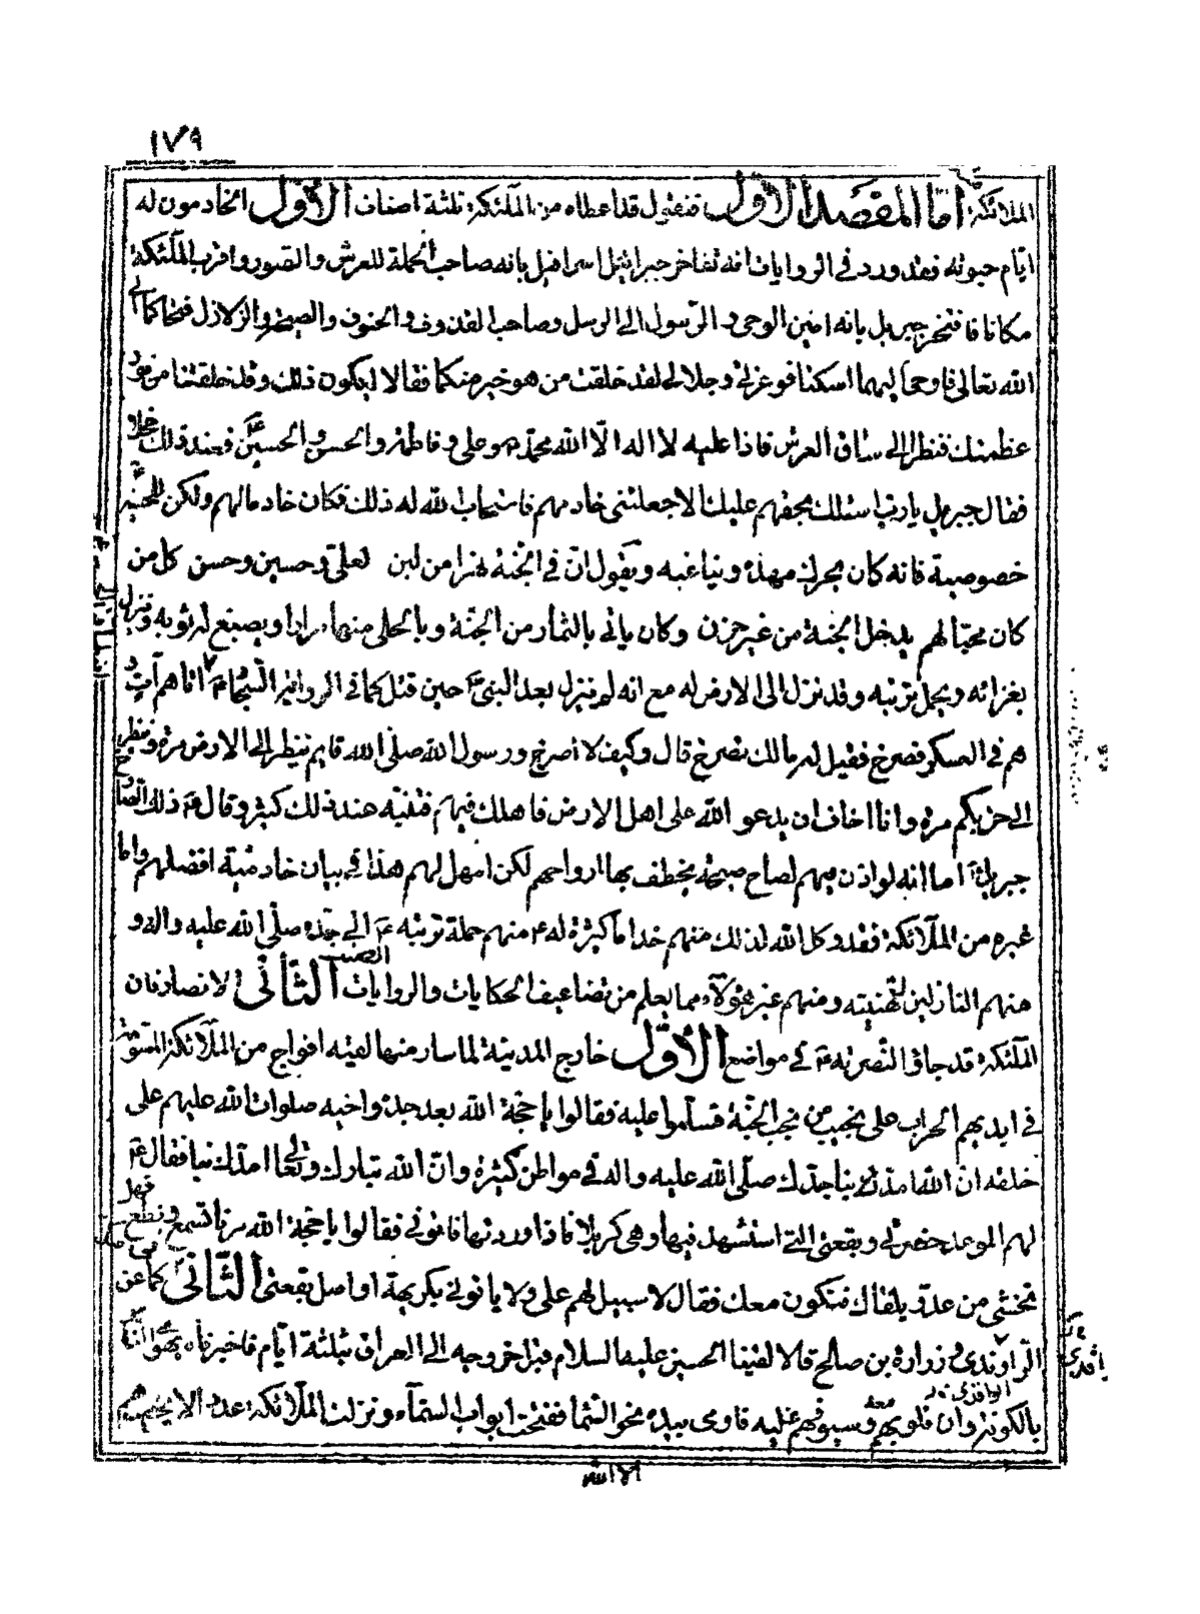 ١٧٩
الملائكة اما المقصد الاول فنقول قد اعطاه من الملئكة ثلثة اصناف الاول الخادمون له
ايام حيوته فقد ورد في الروايات انه تفاخر جبرائيل اسرافيل بانه صاحب الحملة للعرش والصور واقرب الملئكة
مكانا فافتخر جبريل بانه امين الوحي والرسول الى الرسل وصاحب القذوف والخسوف والصيحة والزلازل فتحاكما الى
الله تعالى فاوحى اليهما اسكنا فوعزتي وجلالي لقد خلقت من هو خير منكما فقالا ايكون ذلك وقد خلقتنا من نور
عظمتك فنظرا الى ساق العرش فاذا عليه لا اله الا الله محمد ص وعلي وفاطمة والحسن والحسين ع فعند ذلك خجلا
فقال جبريل يا رب اسئلك بحقهم عليك الا جعلتني خادمهم فاستجاب الله له ذلك فكان خادما لهم ولكن للحسين
خصوصية فانه كان يحرك مهده ويناغيه ويقول ان في الجنة نهرا من لبن لعلي وحسين وحسن كل من
كان محبا لهم يدخل الجنة من غير حزن وكان ياتي بالثمار من الجنة وبالحلي منها مرارا ويصبغ له ثوبه وتنزل
بعزائه ويحمل تربته وقد نزل الى الارض له مع انه لم ينزل بعد النبي ص حين قتل كما في الرواية السجاد ع اتاهم آت و
هم في العسكر فصرخ فقيل له مالك تصرخ قال وكيف لا اصرخ ورسول الله صلى الله قايم ينظر الى الارض مرة وينظر
الى حزبكم مرة وانا اخاف ان يدعو الله على اهل الارض فاهلك فيهم فتنبه عند ذلك كثير وقال ع ذلك الصارخ
جبريل اما انه لو اذن فيهم لصاح صيحة يخطف بها ارواحهم لكن امهل لهم هذا في بيان خادمية افضلهم واما
غيره من الملائكة فقد وكل الله لذلك منهم خداما كثيرة له ع منهم حملة تربته ع الى جده صلى الله عليه واله و
منهم النازلين لتهنيته ومنهم غير هؤلاء مما يعلم من تضاعيف الحكايات والروايات الصنف الثاني الانصار فان
الملئكة قد جاؤا لنصرته ع في مواضع الاول خارج المدينة لما سار منها لقيه افواج من الملائكة المسومة
في ايديهم الحراب على نجب من نجب الجنة فسلموا عليه فقالوا يا حجة الله بعد جده واخيه صلوات الله عليهم على
خلقه ان الله امد بنا جدك صلى الله عليه واله في مواطن كثيرة وان الله تبارك وتعالى امدك بنا فقال ع
لهم الموعد حضرتي وبقعتي التي استشهد فيها وهي كربلا فاذا وردتها فاتوني فقالوا يا حجة الله مرنا نسمع ونطع فهل
تخشى من عدو يلقاك فنكون معك فقال لا سبيل لهم علي ولا ياتوني بكريهة او اصل بقعتي الثاني كما عن
الراوندي وزرارة بن صالح قالا لقينا الحسين عليه السلام قبل خروجه الى العراق بثلثة ايام فاخبرناه بهوى الناس
الواقدي
بالكوفة وان قلوبهم معه وسيوفهم عليه فاومى بيده نحو السماء ففتحت ابواب السماء ونزلت الملائكة عدد لا يحصيهم
الا الله